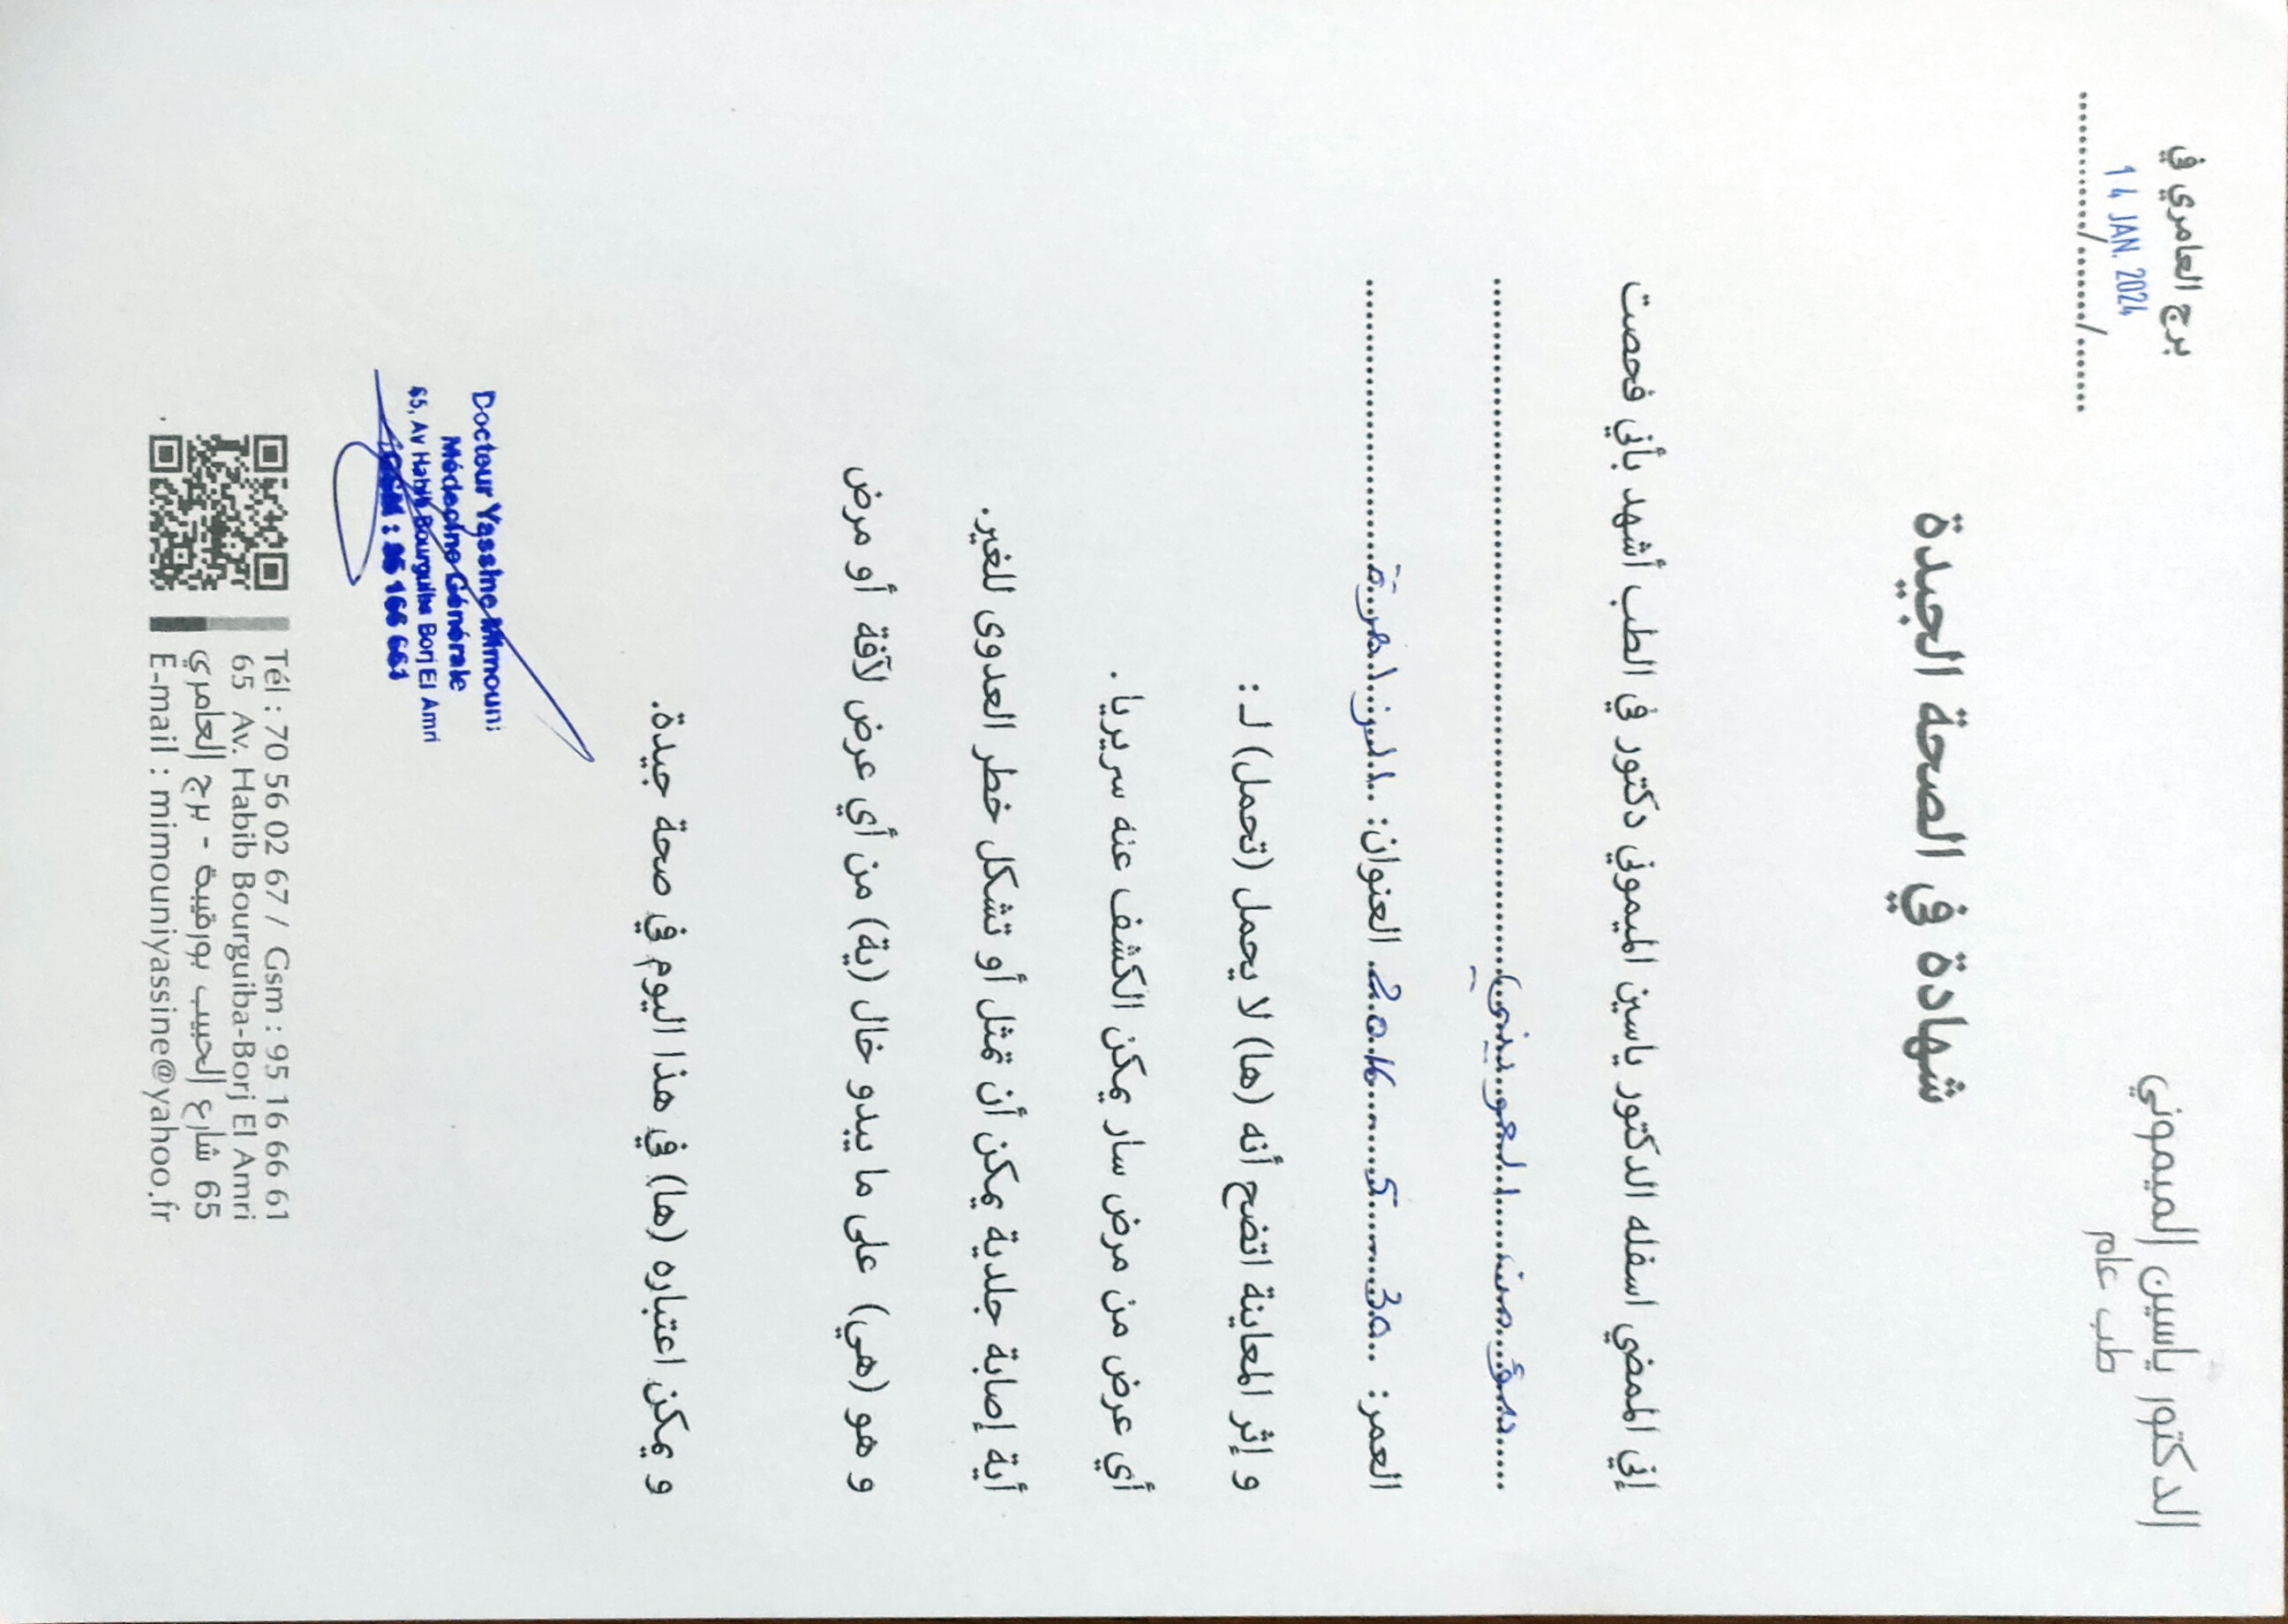 الدكتور ياسين الميموني
طب عام
برج العامري في
14 JAN. 2024
............/......../........
شهادة في الصحة الجيدة
إني الممضي اسفله الدكتور ياسين الميموني دكتور في الطب أشهد بأني فحصت
العوديني
العمر: 30 5 2016 العنوان:
و إثر المعاينة اتضح أنه (ها) لا يحمل (تحمل) لـ :
أي عرض من مرض سار يمكن الكشف عنه سريريا .
أية إصابة جلدية يمكن أن تمثل أو تشكل خطر العدوى للغير.
و هو (هي) على ما يبدو خال (ية) من أي عرض لآفة أو مرض
و يمكن اعتباره (ها) في هذا اليوم في صحة جيدة.
Docteur Yassine Mimouni
Médecine Générale
65, Av Habib Bourguiba Borj El Amri
GSM : 95 166 661
Tél : 70 56 02 67 / Gsm : 95 16 66 61
65 Av. Habib Bourguiba-Borj El Amri
65 شارع الحبيب بورقيبة - برج العامري
E-mail : mimouniyassine@yahoo.fr